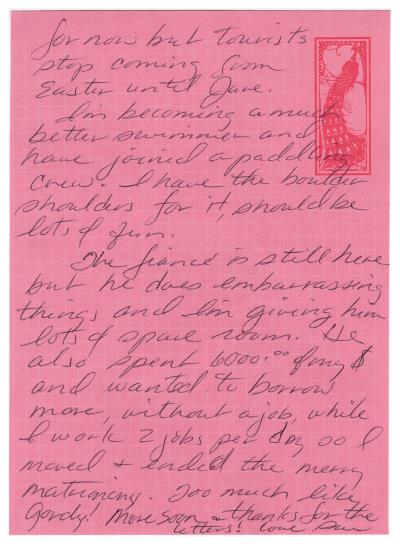 for now but tourists
stop coming from
Easter until June.
I'm becoming a much
better swimmer and
have joined a paddling
crew. I have the boulder
shoulders for it, should be
lots of fun.
The fiancé is still here
but he does embarrassing
things and I'm giving him
lots of space room. He
also spent 6000.00 of my $
and wanted to borrow
more, without a job, while
I work 2 jobs per day so I
moved + ended the merry
matrimony. Too much like
Gordy! More soon - thanks for the
letters! Love